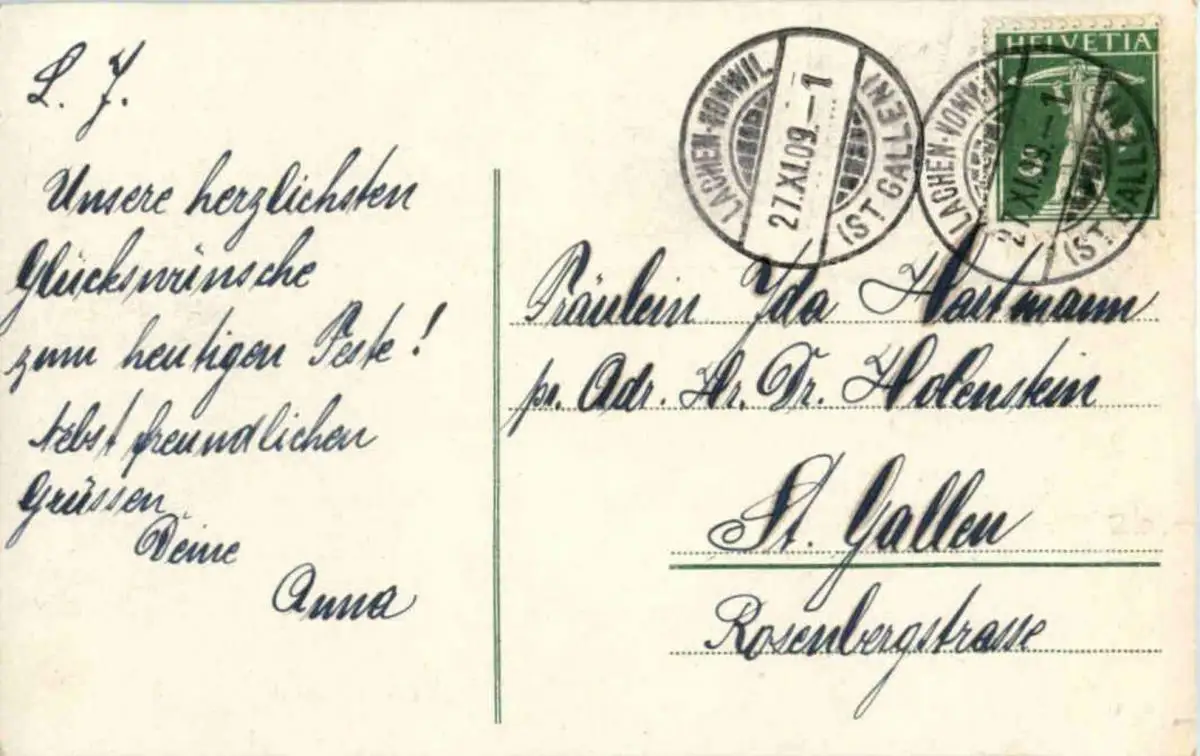 L. J.
Unsere herzlichsten
Glückswünsche
zum heutigen Feste!
Nebst freundlichen
Grüssen
Deine
Anna
LACHEN-VONWIL
27.XI.09.–1
(ST GALLEN)
HELVETIA
LACHEN-VONWIL
27.XI.09.–1
(ST. GALLEN)
Fräulein Ida Hartmann
pr. Adr. Hr. Dr. Holenstein
St. Gallen
Rosenbergstrasse